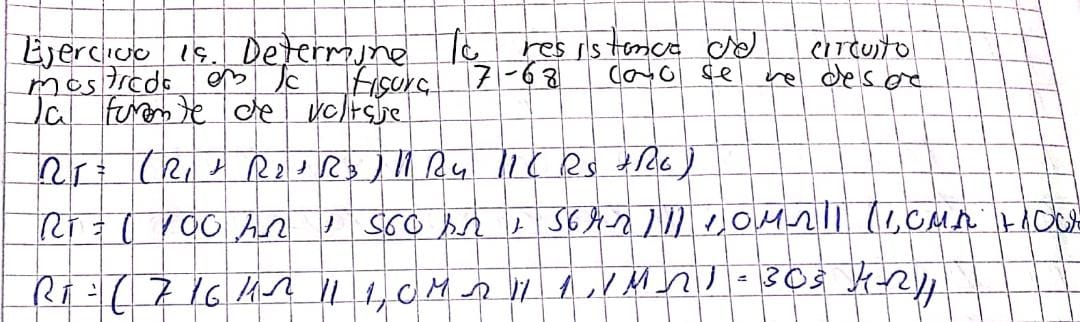 Ejercicio 15. Determine la resistencia del circuito
mostrado en la figura 7-68 como se ve desde
la fuente de voltaje
RT = (R1 + R2 + R3) || R4 || (R5 + R6)
RT = ( 100 kΩ + 560 kΩ + 56 kΩ) || 1,0MΩ || (1,0MΩ + 100k
RT = ( 716 kΩ || 1,0MΩ || 1,1MΩ) = 303 kΩ//